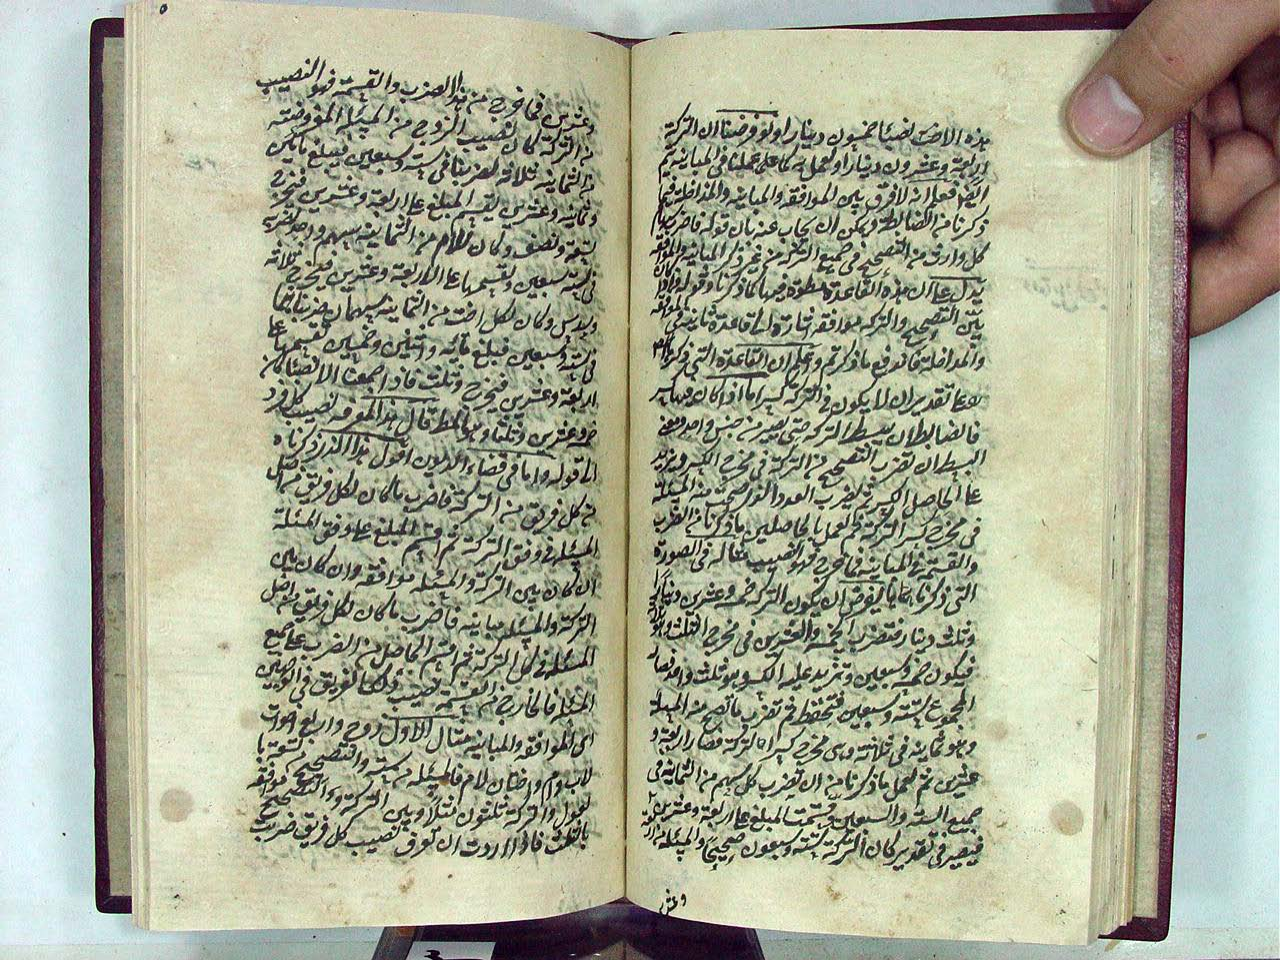 هذه الاخت نصيبا خمسون دينارا ولو فرضنا ان التركة
اربعة وعشرون دينارا ونعمل به كما عملنا في المباينة ثم
فعلم انه لا فرق بين الموافقة والمباينة والمداخلة فيما
ذكرنا من الضابطة ويمكن ان يجاب عنه بان قوله فاضرب سهام
كل وارث من التصحيح في جميع التركة من غير ذكر المباينة والموافقة
يدل على ان هذه القاعدة مطردة فيهما كما ذكرنا وقوله واذا كان
بين التصحيح والتركة موافقة اشارة الى قاعدة ثانية في الموافقة
والمداخلة فاندفع ما ذكرتم واعلم ان القاعدة التي ذكرناها
هو على تقدير ان لا يكون في التركة كسر اما اذا كان فيها كسر
فالضابط ان يبسط التركة حتى يصير من جنس واحد ومعنى
البسط ان تضرب الصحيح من التركة في مخرج الكسر ويزيد
على الحاصل الكسر ثم يضرب العدد الذي صحت منه المسئلة
في مخرج كسر التركة ثم تعمل بالحاصلين ما ذكرنا من الضرب
والقسمة في المباينة فما خرج فهو النصيب مثاله في الصورة
التي ذكرناها بان نفرض ان يكون التركة خمسة وعشرين دينارا
وثلث دينار فتضرب الخمسة والعشرين في مخرج الثلث وهو ثلاثة
فيكون خمسة وسبعين وتزيد عليه الكسر وهو ثلث واحد فصار
المجموع ستة وسبعين فتحفظه ثم تضرب ما تصح منه المسئلة
وهو ثمانية في ثلاثة وهي مخرج كسر التركة فصار اربعة و
عشرين ثم تعمل ما ذكرنا من ان تضرب كل سهم من الثمانية في
جميع الستة والسبعين وقسمت المبلغ على اربعة وعشرين
فيصير في تقدير كان التركة ستة وسبعون صحيحا والمسئلة من اربعة
وعشرين
وعشرين فما خرج من هذا الضرب والقسمة فهو النصيب
من التركة كان لنصيب الزوج من المسئلة المفروضة
من الثمانية ثلاثة ضربناها في ستة وسبعين يبلغ مأتين
وثمانية وعشرين يقسم المبلغ على اربعة وعشرين فيخرج
تسعة ونصف وكان للام من الثمانية سهم واحد ضرب
في ستة وسبعين ونقسمها على الاربعة وعشرين فيخرج ثلاثة
وسدس وكان لكل اخت من الثمانية سهمان ضربناهما
في ستة وسبعين فبلغ مائة واثنين وخمسين نقسمها على
اربعة وعشرين فيخرج ستة وثلث فاذا جمعنا الانصباء كان
خمسة وعشرين وثلثا وهو المط قال هذا لمعرفة نصيب كل فرد
الى قوله واما في قضاء الديون اقول هذا الذي ذكرناه
من كل فريق من التركة فاضرب ما كان لكل فريق من اصل
المسئلة في وفق التركة ثم اقسم المبلغ على وفق المسئلة
ان كان بين التركة والمسئلة موافقة وان كان بين
التركة والمسئلة مباينة فاضرب ما كان لكل فريق من اصل
المسئلة في كل التركة ثم اقسم الحاصل من الضرب على جميع
المسئلة فالخارج من القسمة نصيب ذلك الفريق في الوجهين
اي الموافقة والمباينة مثال الاول زوج واربع اخوات
لاب وام واختان لام فالمسئلة من ستة والتصحيح تسعة بال
عول والتركة ثلثون مثلا وبين التركة والتصحيح موافقة
بالثلث فاذا اردت ان تعرف نصيب كل فريق ضرب